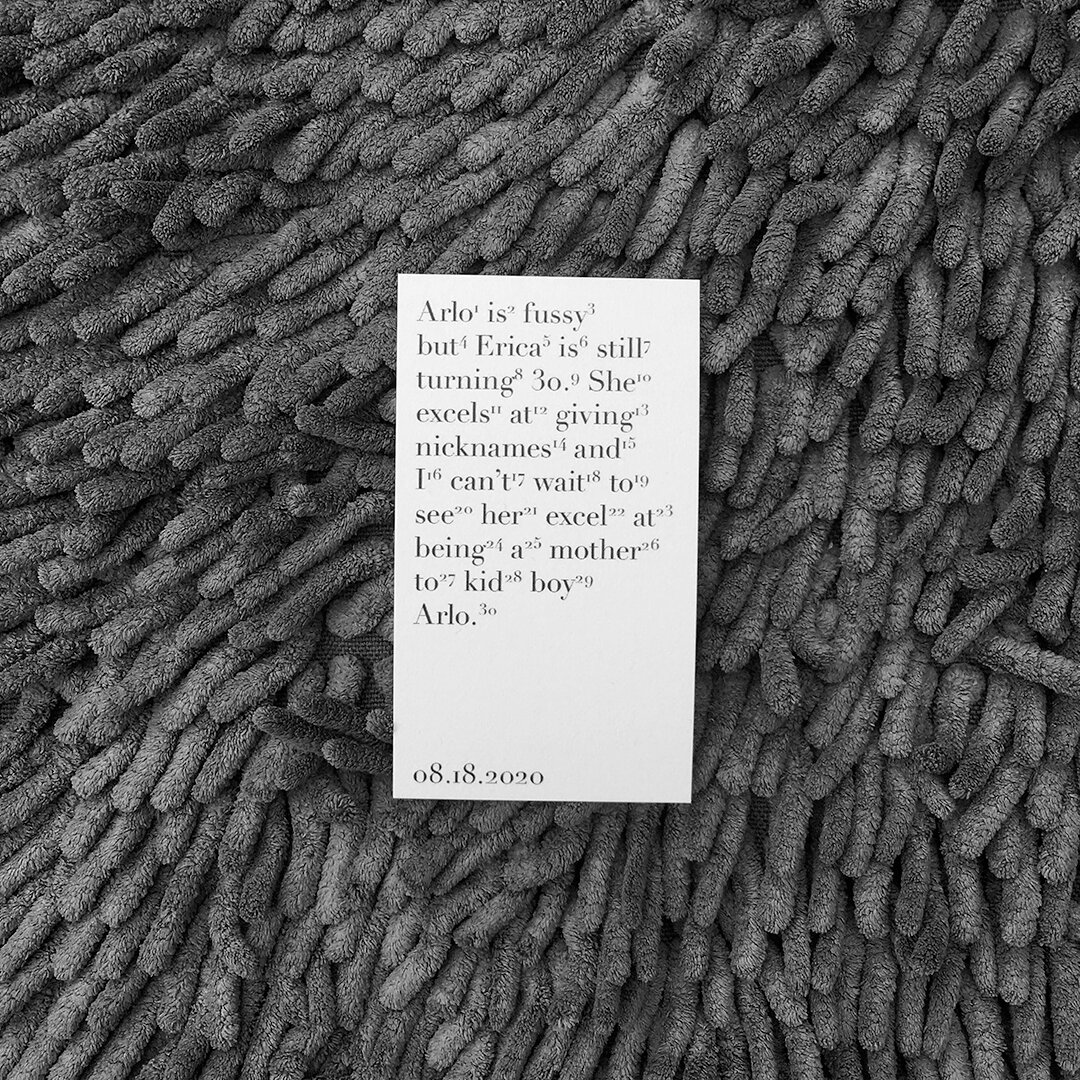 Arlo¹ is² fussy³
but⁴ Erica⁵ is⁶ still⁷
turning⁸ 30.⁹ She¹⁰
excels¹¹ at¹² giving¹³
nicknames¹⁴ and¹⁵
I¹⁶ can’t¹⁷ wait¹⁸ to¹⁹
see²⁰ her²¹ excel²² at²³
being²⁴ a²⁵ mother²⁶
to²⁷ kid²⁸ boy²⁹
Arlo.³⁰
08.18.2020